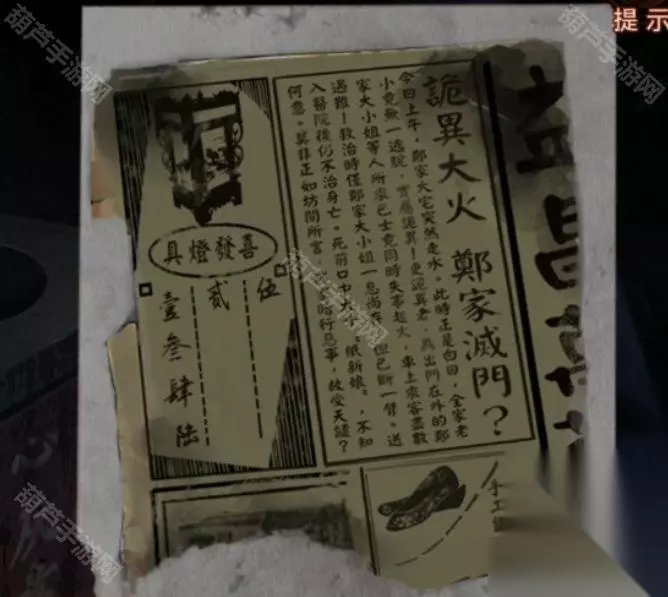 提示
昌
詭異大火 鄭家滅門?
今日上午,鄭家大宅突然走水。此時正是白日,全家老
小竟無一逃脫,實屬詭異!更詭異者,為出門在外的鄭
家大小姐等人所乘巴士竟同時失事起火,車上乘客盡數
遇難!救治時僅鄭家大小姐一息尚存,但已斷一臂。送
入醫院後仍不治身亡。死前口中大 紙新娘 ,不知
何意。莫非正如坊間所言, 暗行惡事,故受天譴?
喜發燈具
伍
貳
壹叁肆陸
手工
葫芦手游网
葫芦手游网
葫芦手游网
葫芦手游网
葫芦手游网